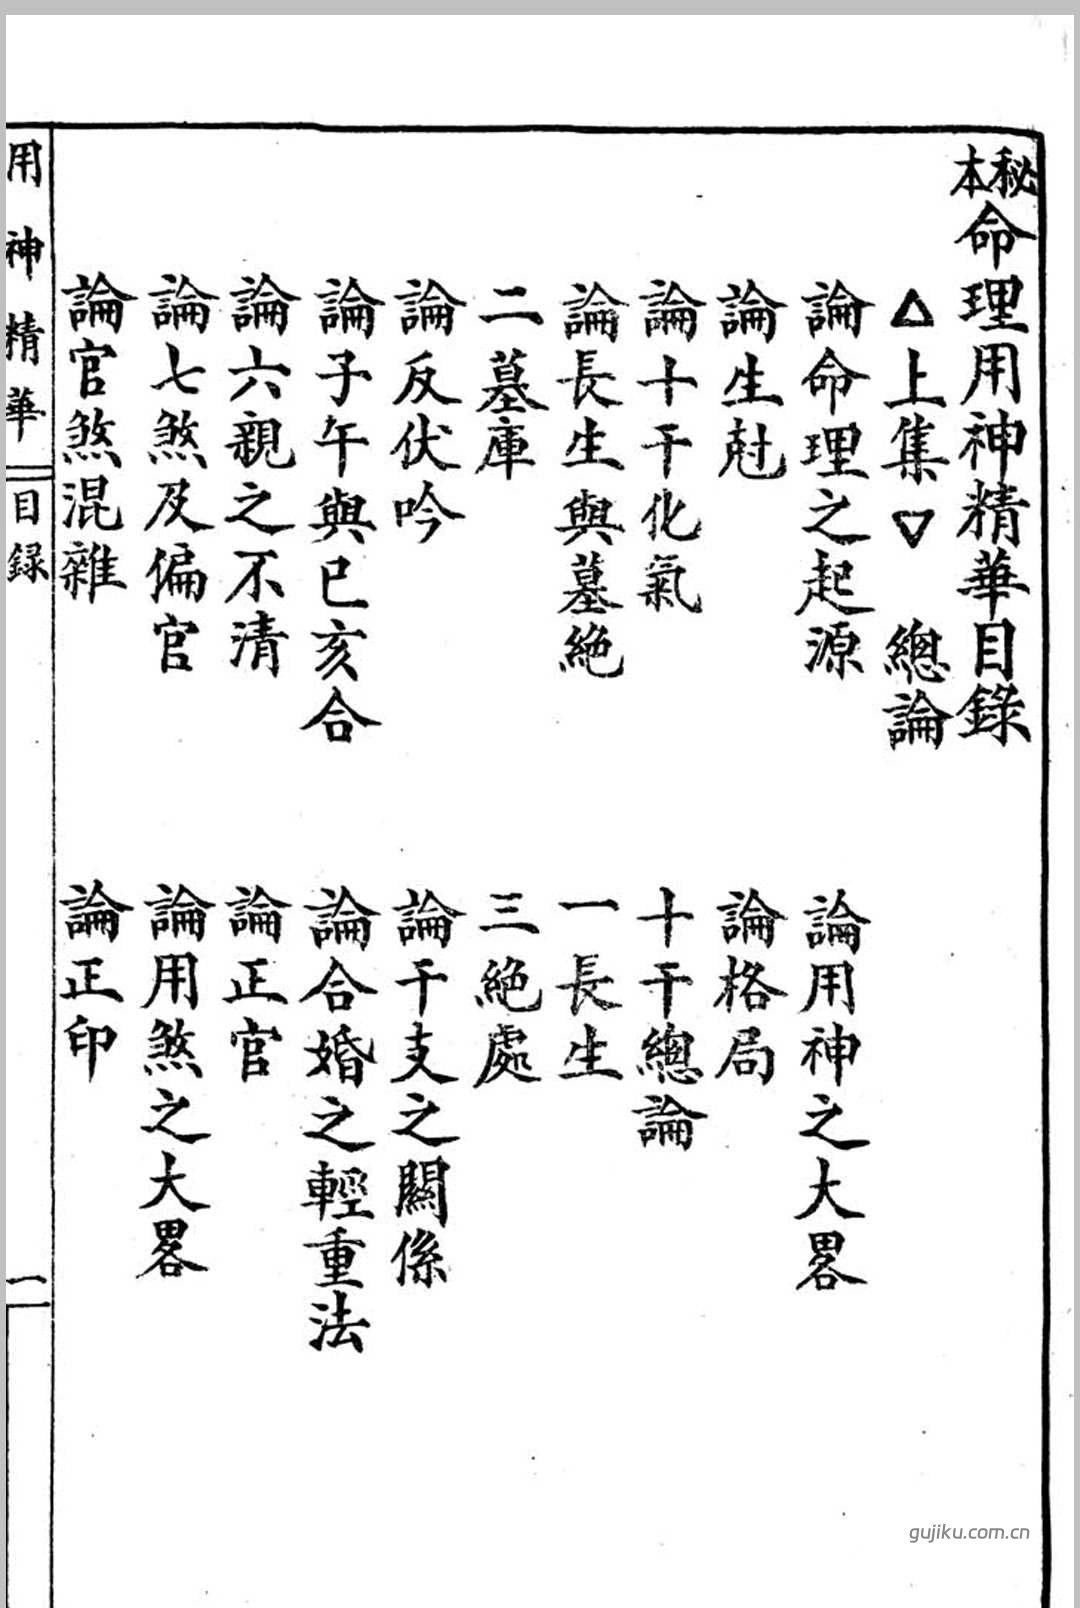 秘本命理用神精華目錄
△上集▽　總論
論命理之起源　論用神之大畧
論生尅　論格局
論十干化氣　十干總論
論長生與墓絕　一長生
二墓庫　三絕處
論反伏吟　論干支之關係
論子午與巳亥合　論合婚之輕重法
論六親之不清　論正官
論七煞及偏官　論用煞之大畧
論官煞混雜　論正印
用神精華　目録　一
gujiku.com.cn